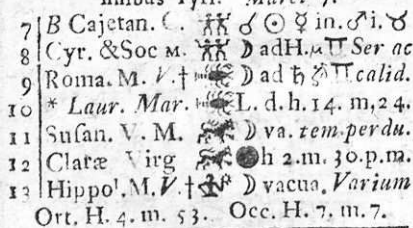 7 B Cajetan. C. ♊ ☌ ☉ ☿ in. ♂ i. ♉
8 Cyr. &Soc M. ♊ ☽ adH. ♊ Ser ac
9 Roma. M. V. † ♋ ☽ ad ♄ ♊ calid.
10 * Laur. Mar. ♋ L. d. h. 14. m, 24.
11 Suſan. V. M. ♌ ☽ va. tem.perdu.
12 Claræ Virg ♌ ● h 2. m. 30. p.m.
13 Hippol. M. V. † ☽ vacua. Varium
Ort. H. 4. m. 53. Occ. H. 7. m. 7.